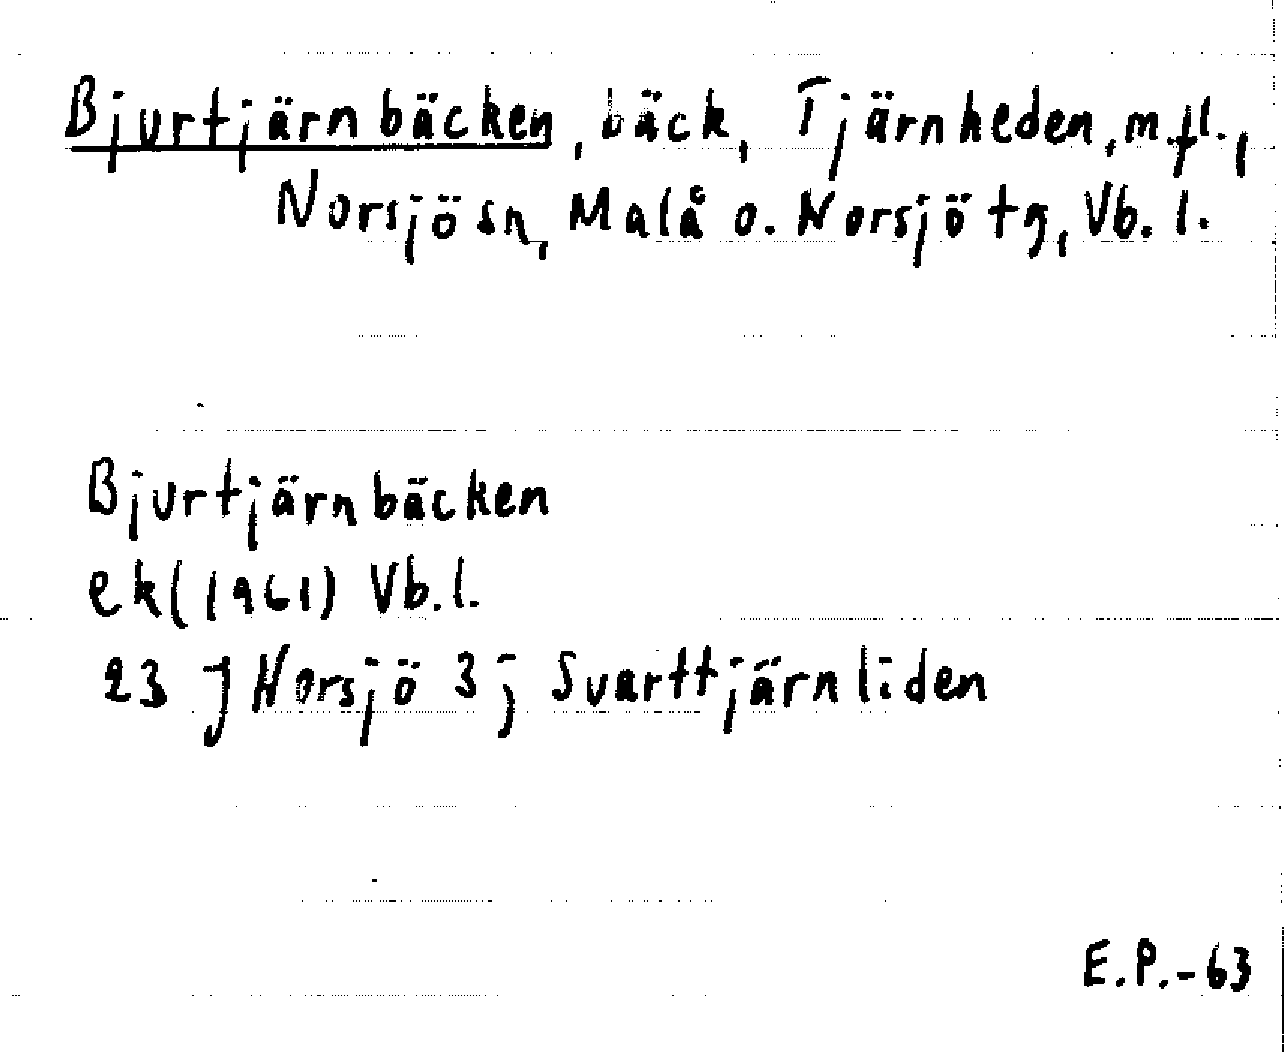 Bjurtjärnbäcken, bäck, Tjärnheden, m.fl.,
Norsjö sn, Malå o. Norsjö tg, Vb. l.
Bjurtjärnbäcken
ek(1961) Vb.l.
23 J Norsjö 3 j Svarttjärnliden
E.P.-63